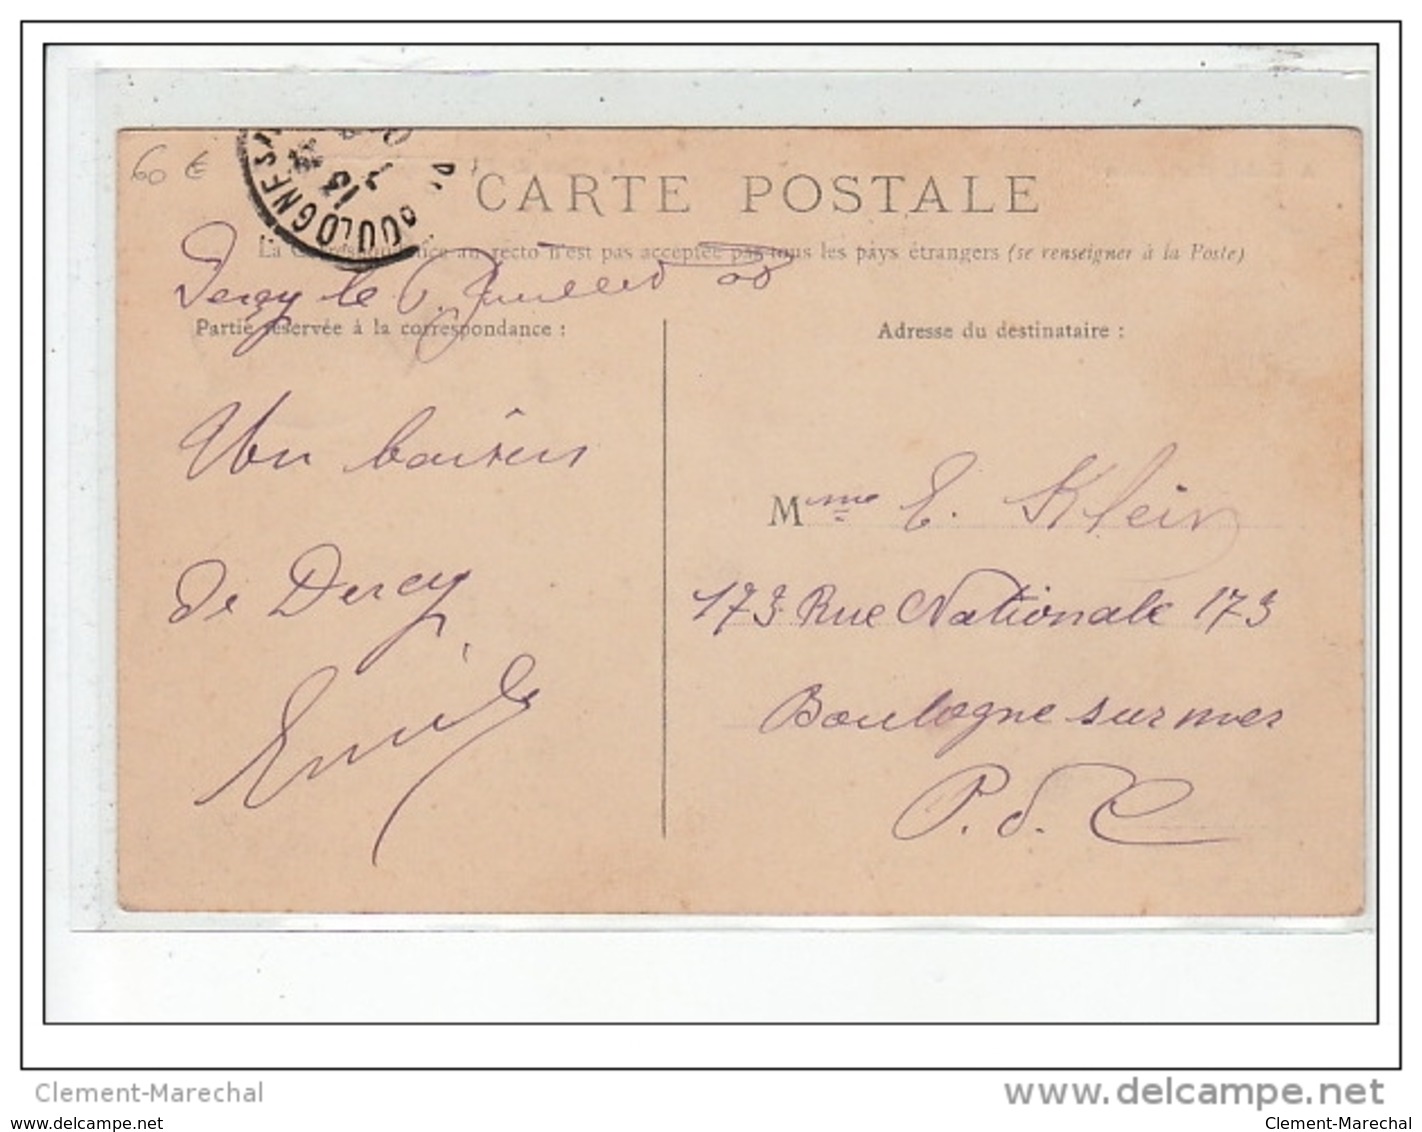 60 €
BOULOGNE S/
13
CARTE POSTALE
La Correspondance au recto n'est pas acceptée par tous les pays étrangers (se renseigner à la Poste)
Dercy le 6 Juillet 08
Partie réservée à la correspondance :
Adresse du destinataire :
Un baisers
de Dercy
Emile
Mme E. Klein
173 Rue Nationale 173
Boulogne sur mer
P. d. C
Clement-Marechal
www.delcampe.net
www.delcampe.net
Clement-Marechal